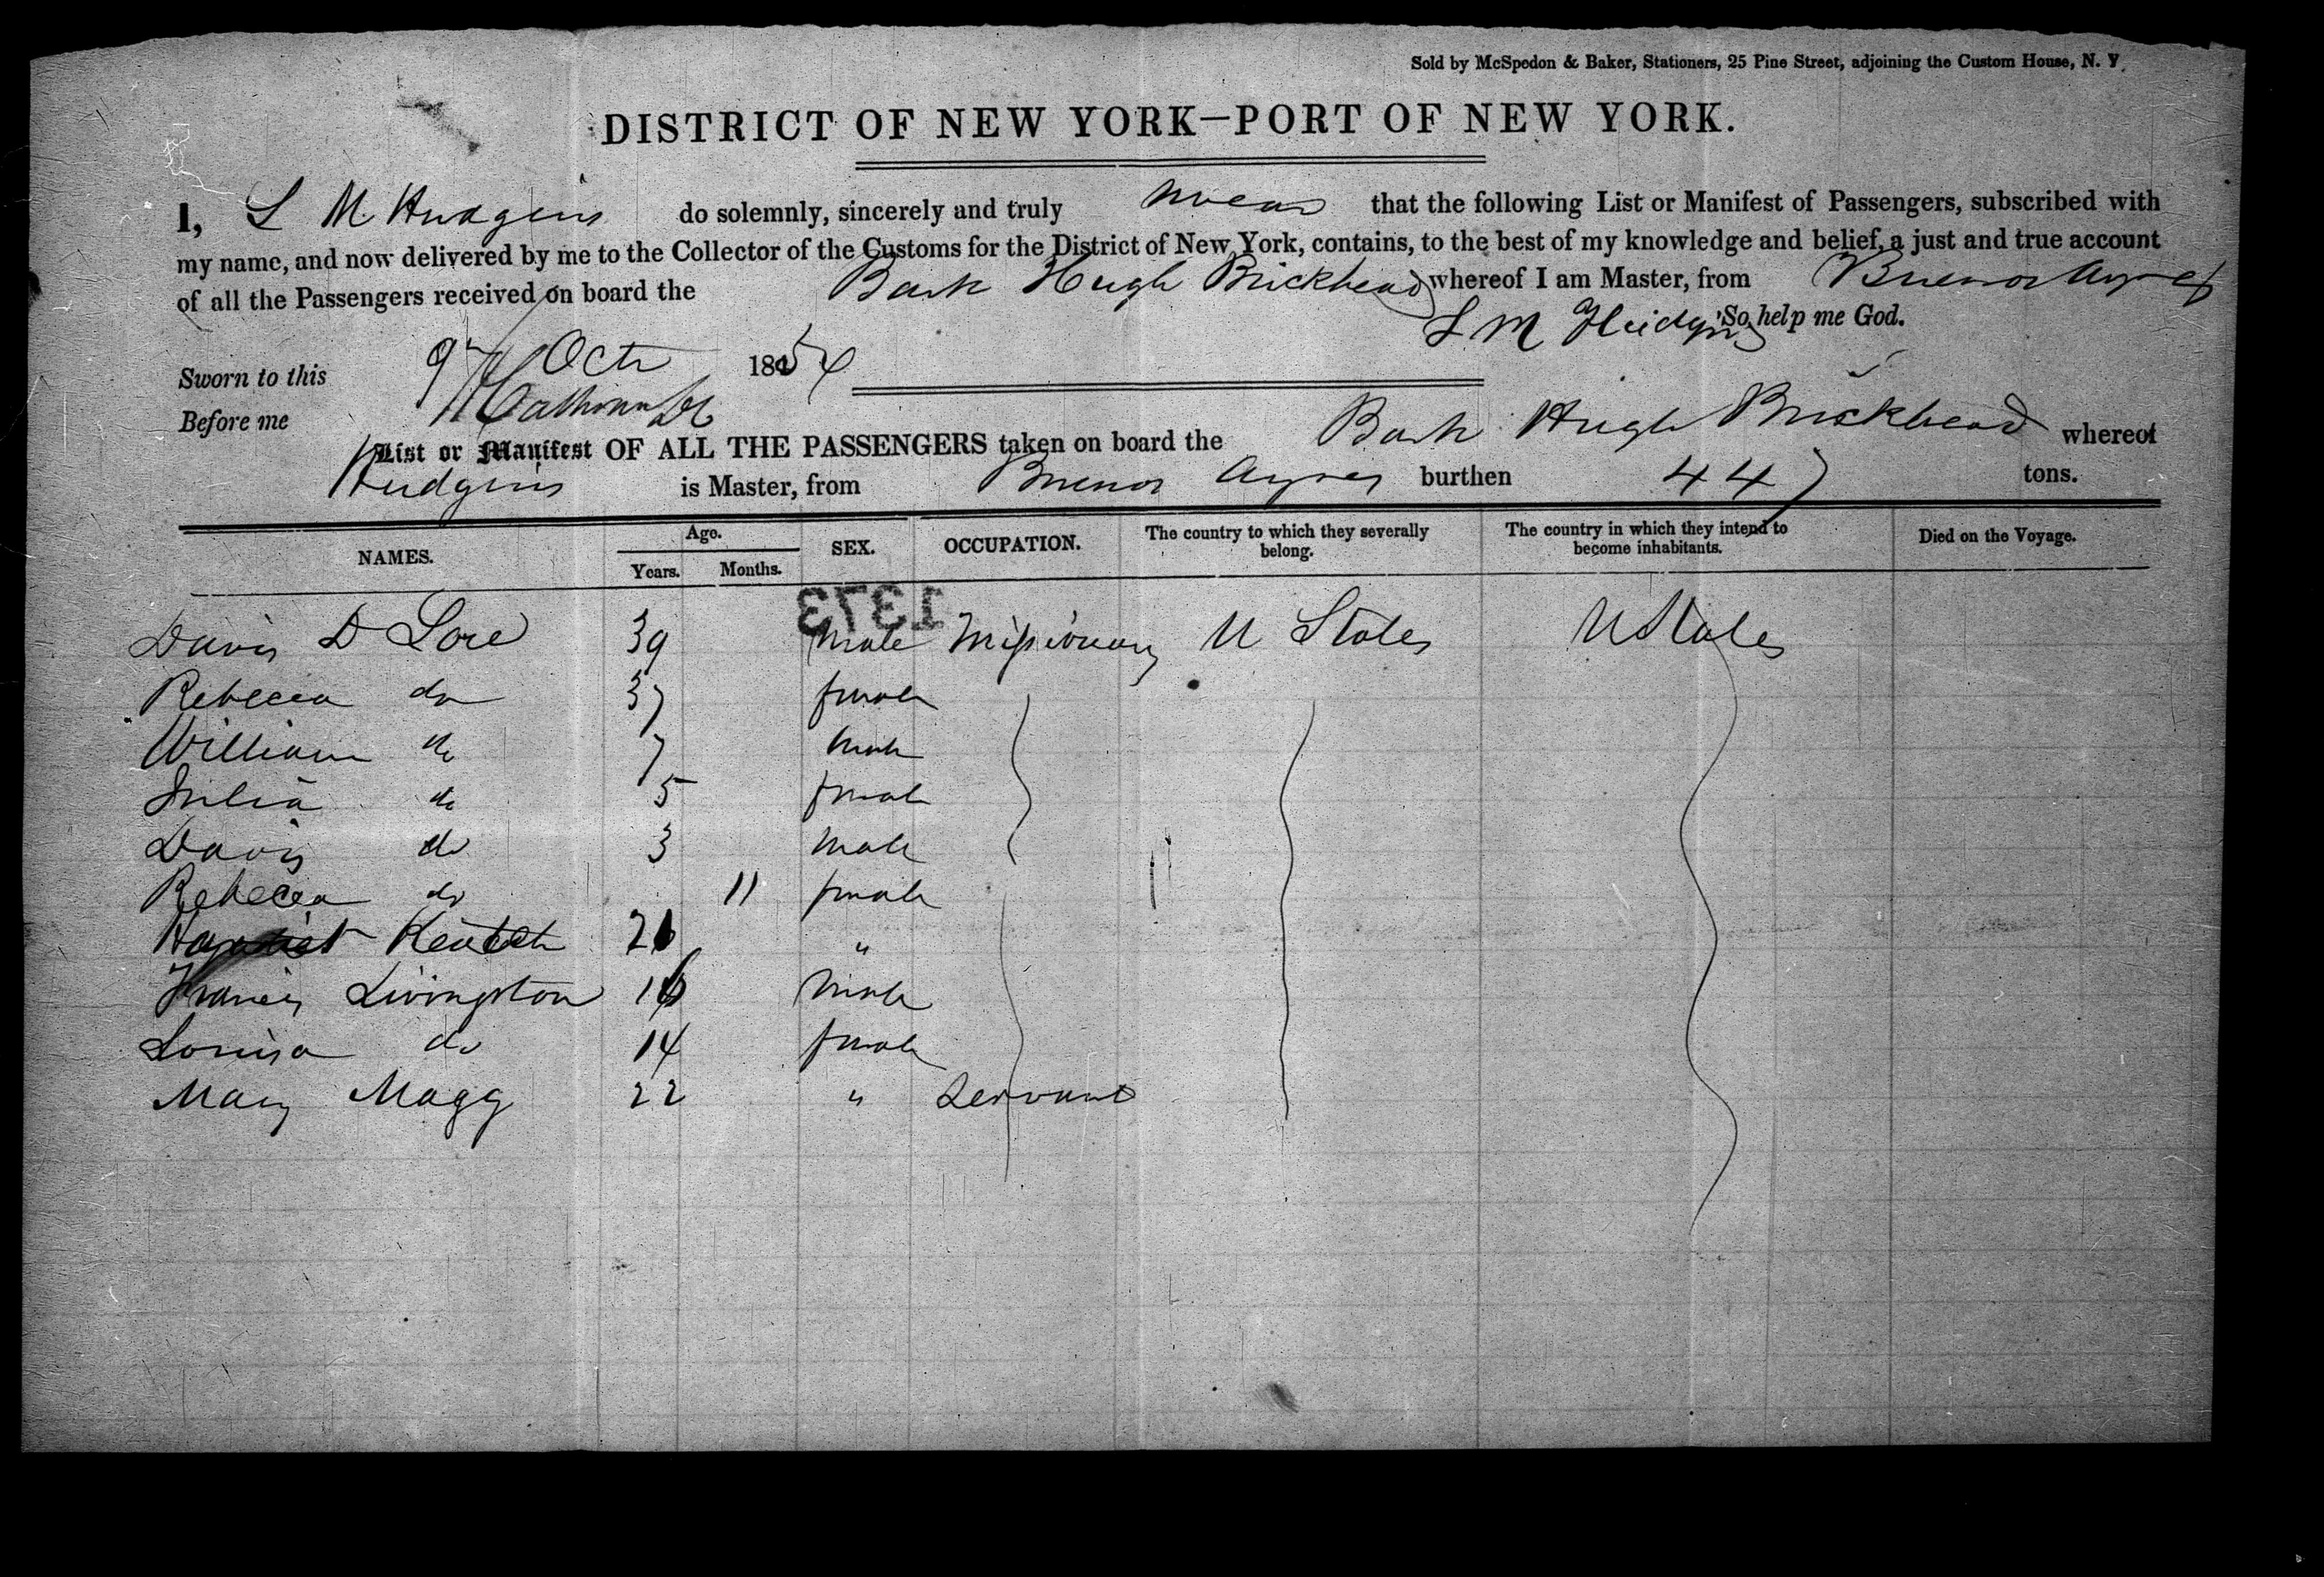 Sold by McSpedon & Baker, Stationers, 25 Pine Street, adjoining the Custom House, N. Y.
DISTRICT OF NEW YORK—PORT OF NEW YORK.
I, L M Hudgins do solemnly, sincerely and truly swear that the following List or Manifest of Passengers, subscribed with
my name, and now delivered by me to the Collector of the Customs for the District of New York, contains, to the best of my knowledge and belief, a just and true account
of all the Passengers received on board the Bark Hugh Brickhead whereof I am Master, from Buenos Ayres
L M Hudgins So help me God.
Sworn to this 9th Oct 1854
Before me
List or Manifest OF ALL THE PASSENGERS taken on board the Bark Hugh Brickhead whereof
Hudgins is Master, from Buenos Ayres burthen 447 tons.
NAMES. Age. Years. Months. SEX. OCCUPATION. The country to which they severally belong. The country in which they intend to become inhabitants. Died on the Voyage.
1373
Davis D Lore 39 male Missionary U States U States
Rebecca do 37 female
William do 7 male
Julia do 5 female
Davis do 3 male
Rebecca do 11 female
26 "
Francis Livingston 16 male
Louisa do 14 female
Mary Magg 22 " Servant